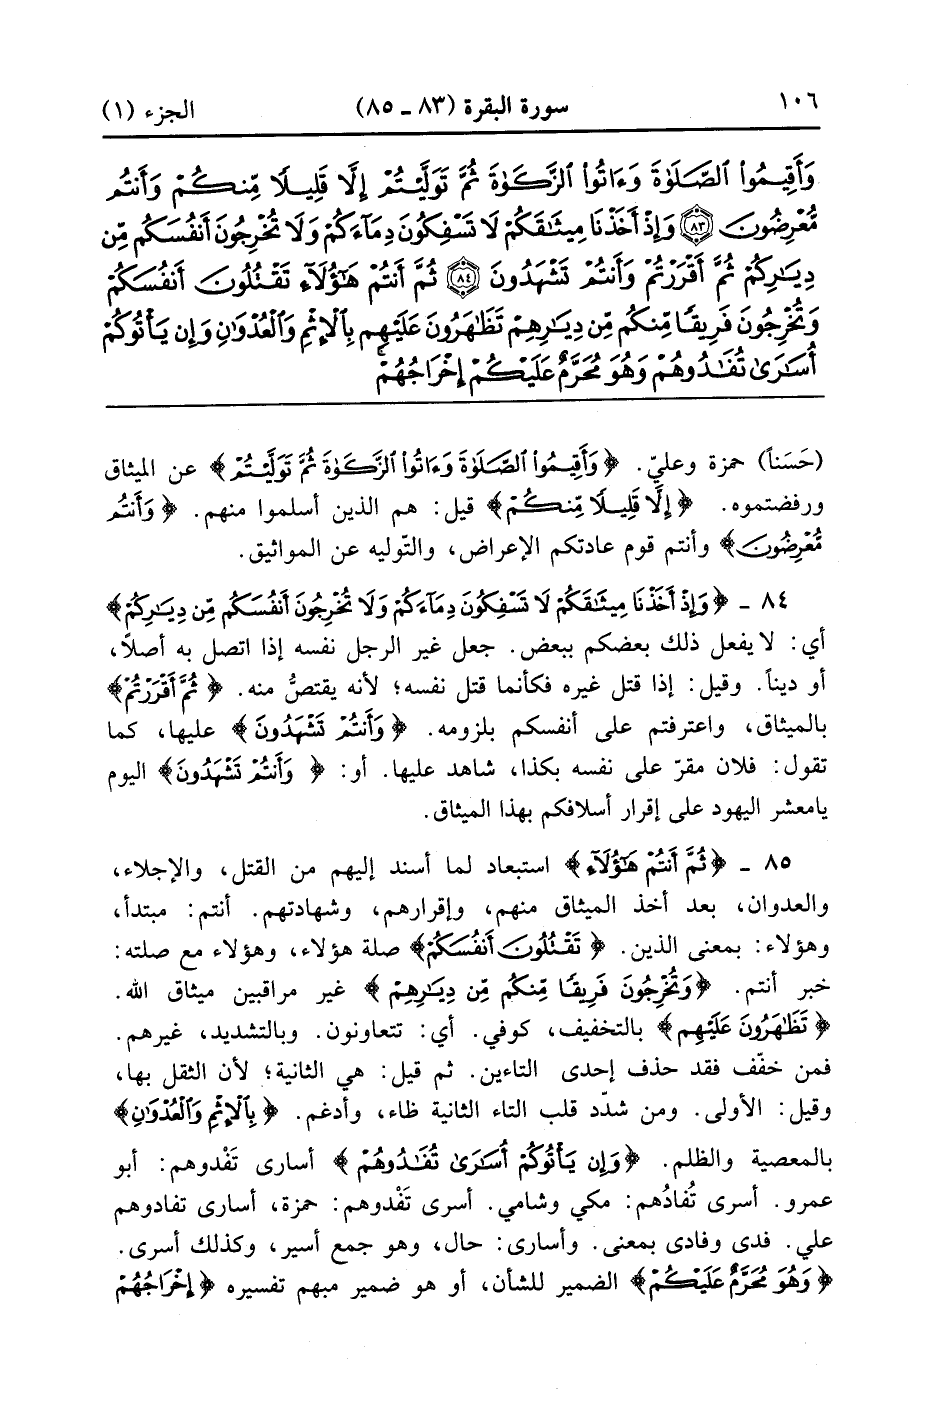 ١٠٦ سورة البقرة (٨٣ ـ ٨٥) الجزء (١)
وَأَقِيمُوا۟ ٱلصَّلَوٰةَ وَءَاتُوا۟ ٱلزَّكَوٰةَ ثُمَّ تَوَلَّيْتُمْ إِلَّا قَلِيلًا مِّنكُمْ وَأَنتُم
مُّعْرِضُونَ ﴿٨٣﴾ وَإِذْ أَخَذْنَا مِيثَٰقَكُمْ لَا تَسْفِكُونَ دِمَآءَكُمْ وَلَا تُخْرِجُونَ أَنفُسَكُم مِّن
دِيَٰرِكُمْ ثُمَّ أَقْرَرْتُمْ وَأَنتُمْ تَشْهَدُونَ ﴿٨٤﴾ ثُمَّ أَنتُمْ هَٰٓؤُلَآءِ تَقْتُلُونَ أَنفُسَكُمْ
وَتُخْرِجُونَ فَرِيقًا مِّنكُم مِّن دِيَٰرِهِمْ تَظَٰهَرُونَ عَلَيْهِم بِٱلْإِثْمِ وَٱلْعُدْوَٰنِ وَإِن يَأْتُوكُمْ
أُسَٰرَىٰ تُفَٰدُوهُمْ وَهُوَ مُحَرَّمٌ عَلَيْكُمْ إِخْرَاجُهُمْ ۚ
(حَسَناً) حمزة وعليّ. ﴿وَأَقِيمُوا۟ ٱلصَّلَوٰةَ وَءَاتُوا۟ ٱلزَّكَوٰةَ ثُمَّ تَوَلَّيْتُمْ﴾ عن الميثاق
ورفضتموه. ﴿إِلَّا قَلِيلًا مِّنكُمْ﴾ قيل: هم الذين أسلموا منهم. ﴿وَأَنتُم
مُّعْرِضُونَ﴾ وأنتم قوم عادتكم الإعراض، والتّوليه عن المواثيق.
٨٤ ـ ﴿وَإِذْ أَخَذْنَا مِيثَٰقَكُمْ لَا تَسْفِكُونَ دِمَآءَكُمْ وَلَا تُخْرِجُونَ أَنفُسَكُم مِّن دِيَٰرِكُمْ﴾
أي: لا يفعل ذلك بعضكم ببعض. جعل غير الرجل نفسه إذا اتصل به أصلاً،
أو ديناً. وقيل: إذا قتل غيره فكأنما قتل نفسه؛ لأنه يقتصُّ منه. ﴿ثُمَّ أَقْرَرْتُمْ﴾
بالميثاق، واعترفتم على أنفسكم بلزومه. ﴿وَأَنتُمْ تَشْهَدُونَ﴾ عليها، كما
تقول: فلان مقرّ على نفسه بكذا، شاهد عليها. أو: ﴿وَأَنتُمْ تَشْهَدُونَ﴾ اليوم
يامعشر اليهود على إقرار أسلافكم بهذا الميثاق.
٨٥ ـ ﴿ثُمَّ أَنتُمْ هَٰٓؤُلَآءِ﴾ استبعاد لما أسند إليهم من القتل، والإجلاء،
والعدوان، بعد أخذ الميثاق منهم، وإقرارهم، وشهادتهم. أنتم: مبتدأ،
وهؤلاء: بمعنى الذين. ﴿تَقْتُلُونَ أَنفُسَكُمْ﴾ صلة هؤلاء، وهؤلاء مع صلته:
خبر أنتم. ﴿وَتُخْرِجُونَ فَرِيقًا مِّنكُم مِّن دِيَٰرِهِمْ﴾ غير مراقبين ميثاق الله.
﴿تَظَٰهَرُونَ عَلَيْهِم﴾ بالتخفيف، كوفي. أي: تتعاونون. وبالتشديد، غيرهم.
فمن خفّف فقد حذف إحدى التاءين. ثم قيل: هي الثانية؛ لأن الثقل بها،
وقيل: الأولى. ومن شدّد قلب التاء الثانية ظاء، وأدغم. ﴿بِٱلْإِثْمِ وَٱلْعُدْوَٰنِ﴾
بالمعصية والظلم. ﴿وَإِن يَأْتُوكُمْ أُسَٰرَىٰ تُفَٰدُوهُمْ﴾ أسارى تَفْدوهم: أبو
عمرو. أسرى تُفادُهم: مكي وشامي. أسرى تَفْدوهم: حمزة، أسارى تفادوهم
علي. فدى وفادى بمعنى. وأسارى: حال، وهو جمع أسير، وكذلك أسرى.
﴿وَهُوَ مُحَرَّمٌ عَلَيْكُمْ﴾ الضمير للشأن، أو هو ضمير مبهم تفسيره ﴿إِخْرَاجُهُمْ